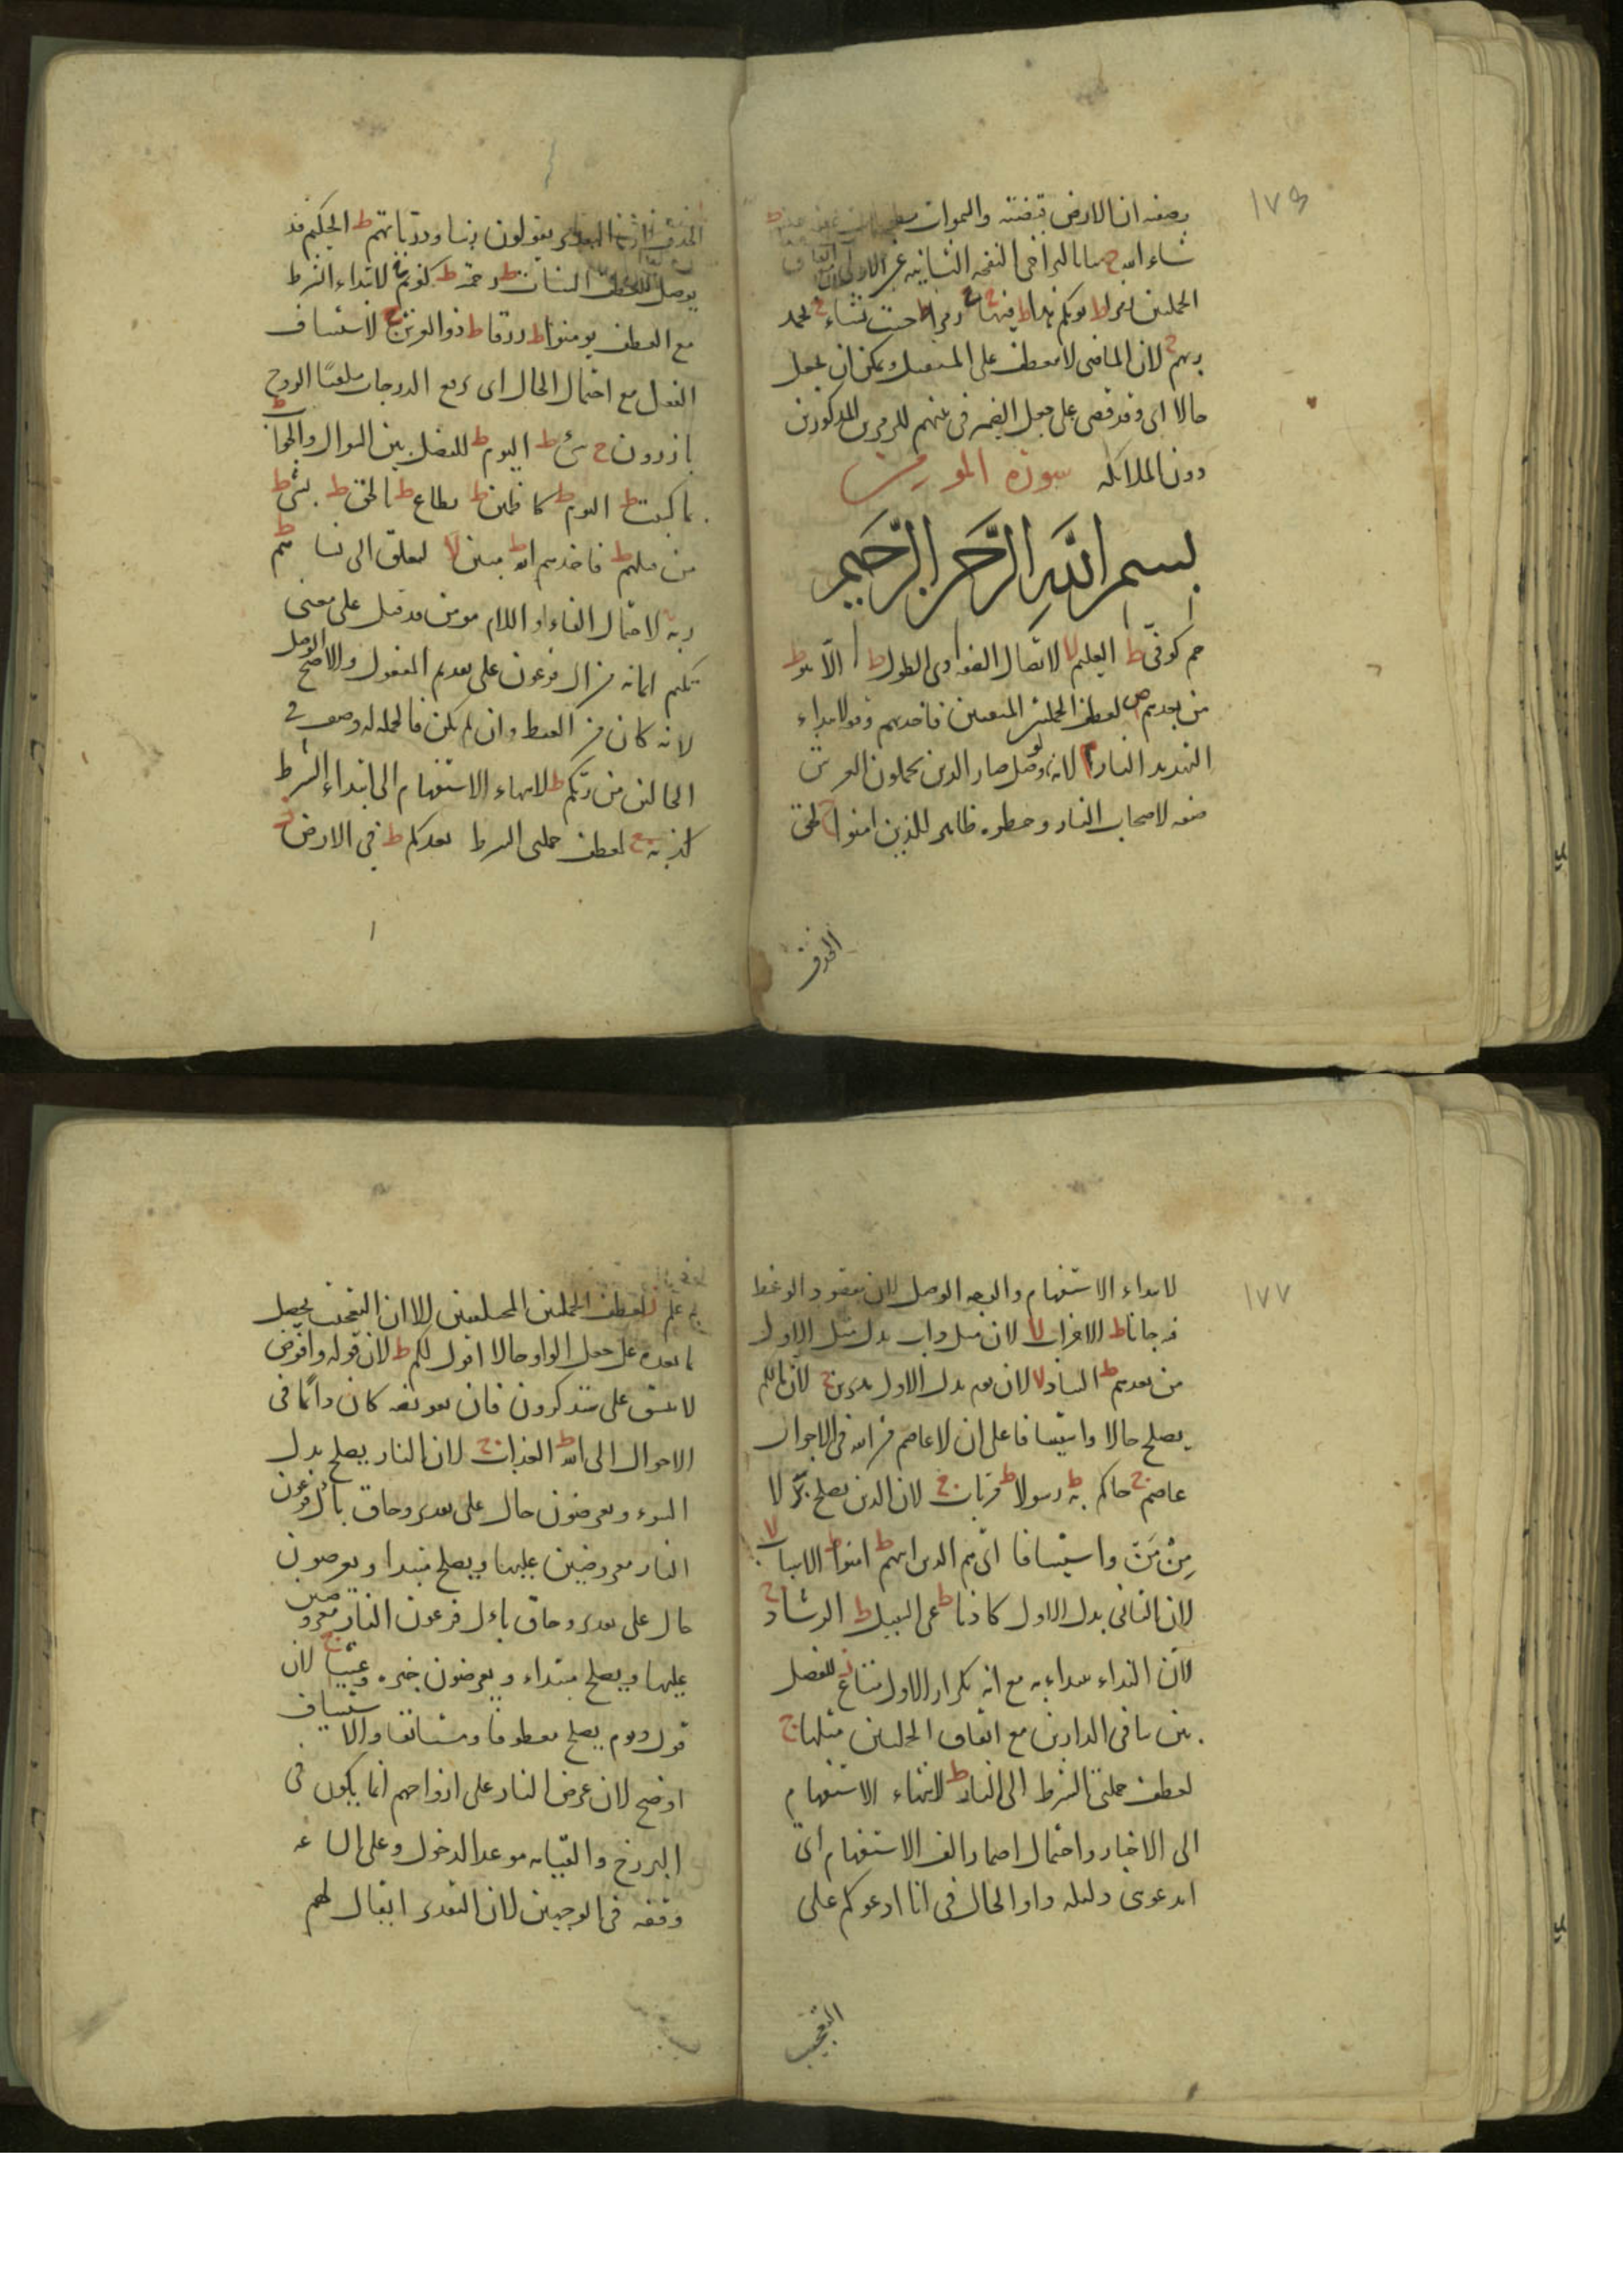 ١٧٦
وصفه ان الارض قبضته والسموات
شاء الله ج بيانا لتراخى النفخة الثانية عن الاولى
الجملتين زمرا ط يومكم هذا ط فيها ج زمرا ط حيث نشاء ج بحمد
ربهم ج لان الماضى لا يعطف على المستقبل ويمكن ان يجعل
حالا اى وقد قضى على جعل الضمير فى بينهم للزمرين المذكورين
دون الملائكة سورة المومن
بسم الله الرحمن الرحيم
حم كوفى ط العليم لا لاتصال الصفة ذى الطول ط الا هو ط
من بعدهم ص لعطف الجملتين المتفقتين فاخذتهم وقفا لابتداء
التهديد النار م لانه لو وصل صار الذين يحملون العرش
صفة لاصحاب النار وخطره ظاهر للذين امنوا ج لحق
الحذف
يقولون ربنا وقد تناهى ط الجحيم قد
يوصل للعطف السيات ط رحمته ط كفرتم ج لابتداء الشرط
مع العطف تومنوا ط رزقا ط ذو العرش ج لاستيناف
الفعل مع احتمال الحال اى رفع الدرجات ملقيا الروح
بارزون ج شىء ط اليوم ط للفصل بين السوال والجواب
بما كسبت ط اليوم ط كاظمين ط يطاع ط بالحق ط بشىء ط
من قبلهم ط فاخذهم الله ط مبين لا لتعلق الى نسائهم ط
ربه ج لاحتمال الفاء او اللام مومن قد قيل على معنى
يكتم ايمانه من ال فرعون على تقديم المفعول والاصح الوصل
لانه كان من القبط وان لم يكن فالجملة له وصف فى
الحالين من ربكم ط لانتهاء الاستفهام الى ابتداء الشرط
كذبه ج لعطف جملتى الشرط يعدكم ط فى الارض ز
١٧٧
لابتداء الاستفهام والوجه الوصل لان مقصود الوعظ
فيه جاءنا ط الاحزاب لا لان مثل داب بدل مثل الاول
من بعدهم ط التناد لا لان يوم بدل الاول مدبرين ج لان ما لكم
يصلح حالا واستينافا على ان لا عاصم من الله فى الاحوال
عاصم ج جاكم به ط رسولا ط مرتاب ج لان الذين يصلح بدلا
من من واستينافا اى هم الذين اتيهم ط امنوا ط الاسباب لا
لان الثانى بدل الاول كاذبا ط عن السبيل ط الرشاد ج
لان النداء يبداء به مع انه تكرار الاول متاع ز للفصل
بين تنافى الدارين مع اتفاق الجملتين مثلها ج
لعطف جملتى الشرط الى النار ط لانتهاء الاستفهام
الى الاخبار واحتمال اضمار الف الاستفهام اى
اتدعوننى دليله واو الحال فى انا ادعوكم على
التعجيب
به علم ز لعطف الجملتين المختلفتين الا ان التعجيب يحصل
بما بعده على جعل الواو حالا اقول لكم ط لان قوله وافوض
لا يتسق على ستذكرون فان تفويضه كان دائما فى
الاحوال الى الله ط العذاب ج لان النار يصلح بدل
السوء ويعرضون حال على تقدير وحاق بال فرعون
النار معروضين عليها ويصلح مبتدا ويعرضون
حال على تقدير وحاق بال فرعون النار معروضين
عليها ويصلح مبتداء ويعرضون خبره وعشيا ج لان
قوله ويوم يصلح معطوفا ومستانفا والاستيناف
اوضح لان عرض النار على ارواحهم انما يكون فى
البرزخ والقيامة موعد الدخول وعلى الساعة
وقفه فى الوجهين لان التقدير ايقال لهم